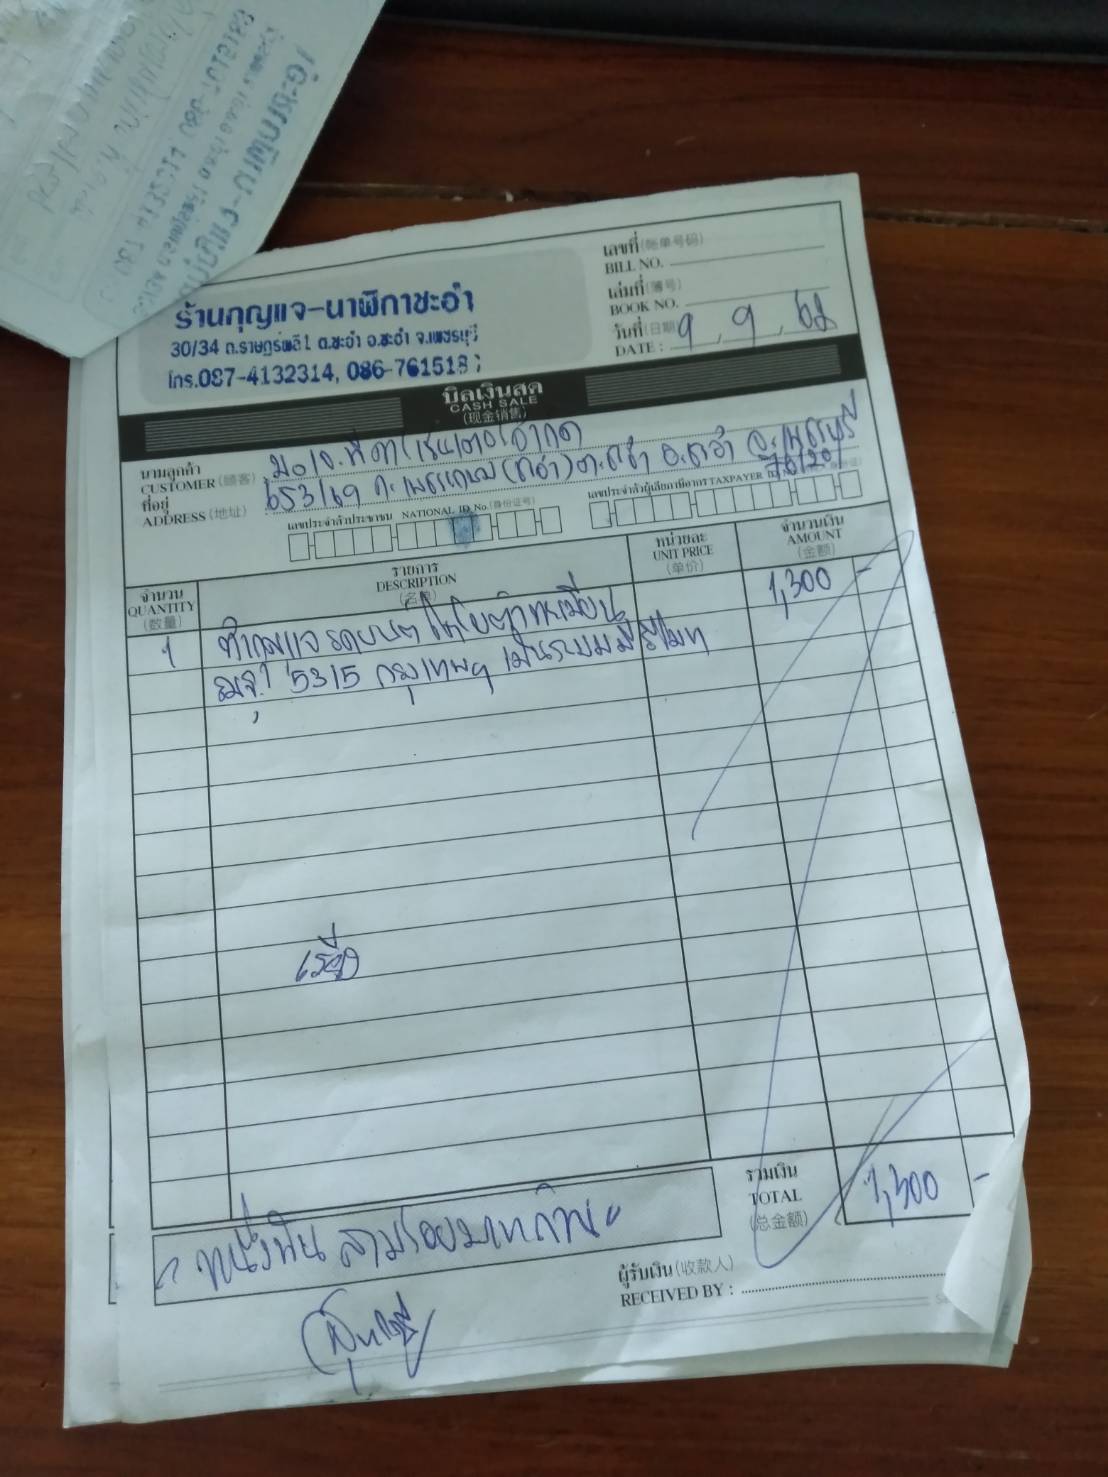 ร้านกุญแจ-นาฬิกาชะอำ
30/34 ถ.ราษฎร์พลี1 ต.ชะอำ อ.ชะอำ จ.เพชรบุรี
โทร.087-4132314, 086-761518
เลขที่ (帐单号码)
BILL NO.
เล่มที่ (簿号)
BOOK NO.
วันที่ (日期) 9 9 68
DATE :
บิลเงินสด
CASH SALE
(现金销售)
นามลูกค้า
CUSTOMER (顾客)
ที่อยู่
ADDRESS (地址)
653/69 ถ.เพชรเกษม (ชะอำ) ต.ชะอำ อ.ชะอำ จ.เพชรบุรี
76120
เลขประจำตัวประชาชน NATIONAL ID No. (身份证号)
เลขประจำตัวผู้เสียภาษีอากร TAXPAYER
จำนวน
QUANTITY
(数量)
รายการ
DESCRIPTION
(名单)
หน่วยละ
UNIT PRICE
(单价)
จำนวนเงิน
AMOUNT
(金额)
1 ทำกุญแจรถยนต์ ทะเบียน 1,300 -
5315 กรุงเทพฯ เป็นระบบมีรีโมท
รวมเงิน
TOTAL
(总金额)
1,300 -
" หนึ่งพันสามร้อยบาทถ้วน "
ผู้รับเงิน (收款人)
RECEIVED BY :